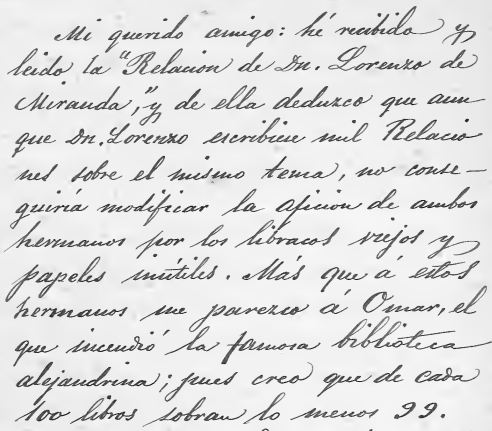 Mi querido amigo: hé recibido y
leido la "Relacion de Dn. Lorenzo de
Miranda," y de ella deduzco que aun
que Dn. Lorenzo escribiese mil Relacio
nes sobre el mismo tema, no conse-
guiría modificar la aficion de ambos
hermanos por los libracos viejos y
papeles inútiles. Más que á estos
hermanos me parezco á Omar, el
que incendió la famosa biblioteca
alejandrina; pues creo que de cada
100 libros sobran lo menos 99.